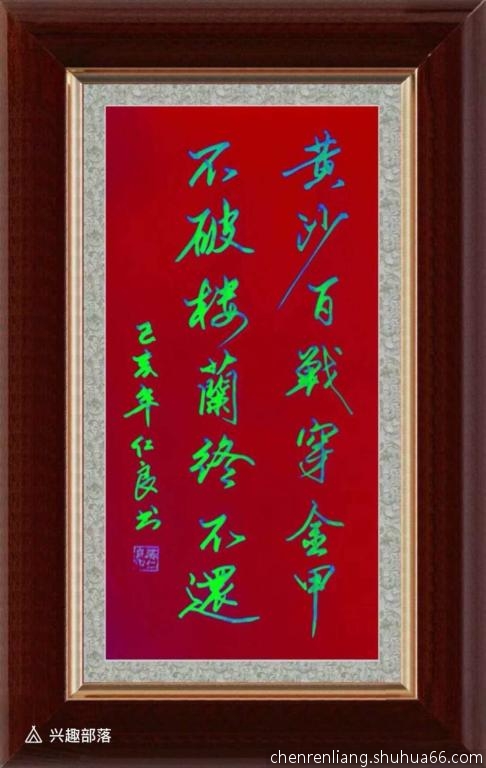 黄沙百戰穿金甲
不破楼蘭終不還
己亥年仁良书
兴趣部落
chenrenliang.shuhua66.com